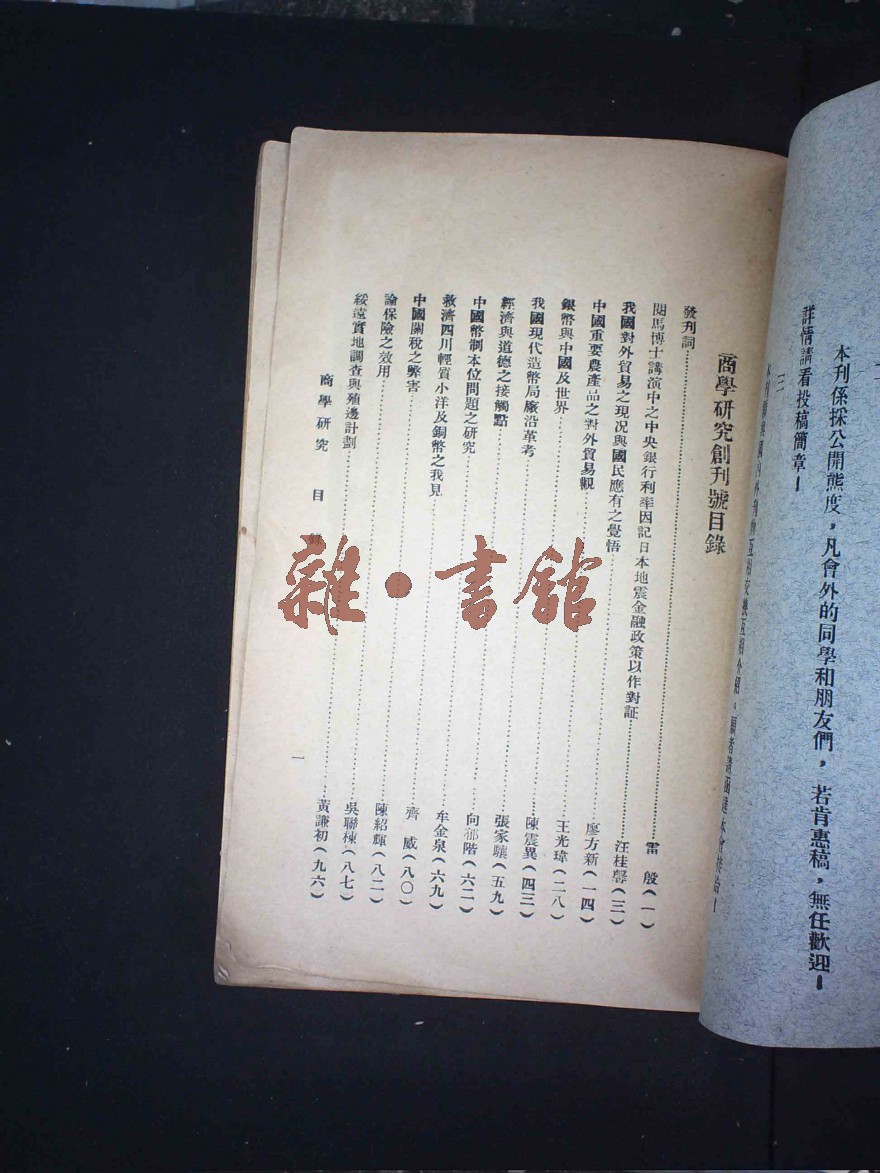 本刊係採公開態度，凡會外的同學和朋友們，若肯惠稿，無任歡迎！
詳情請看投稿簡章！
三
商學研究創刊號目錄
發刊詞
閱馬博士講演中之中央銀行利率因記日本地震金融政策以作對証……雷 殷（一）
我國對外貿易之現况與國民應有之覺悟……汪桂馨（三）
中國重要農產品之對外貿易觀……廖方新（一四）
銀幣與中國及世界……王光瑋（二八）
我國現代造幣局廠沿革考……陳震異（四三）
經濟與道德之接觸點……張家驤（五九）
中國幣制本位問題之研究……向郁階（六二）
救濟四川輕質小洋及銅幣之我見……牟金泉（六九）
中國關稅之弊害……齊 威（八〇）
論保險之效用……陳紹輝（八二）
綏遠實地調查與殖邊計劃……吳聯棟（八七）
黃謙初（九六）
商學研究 目 錄
一
雜·書館